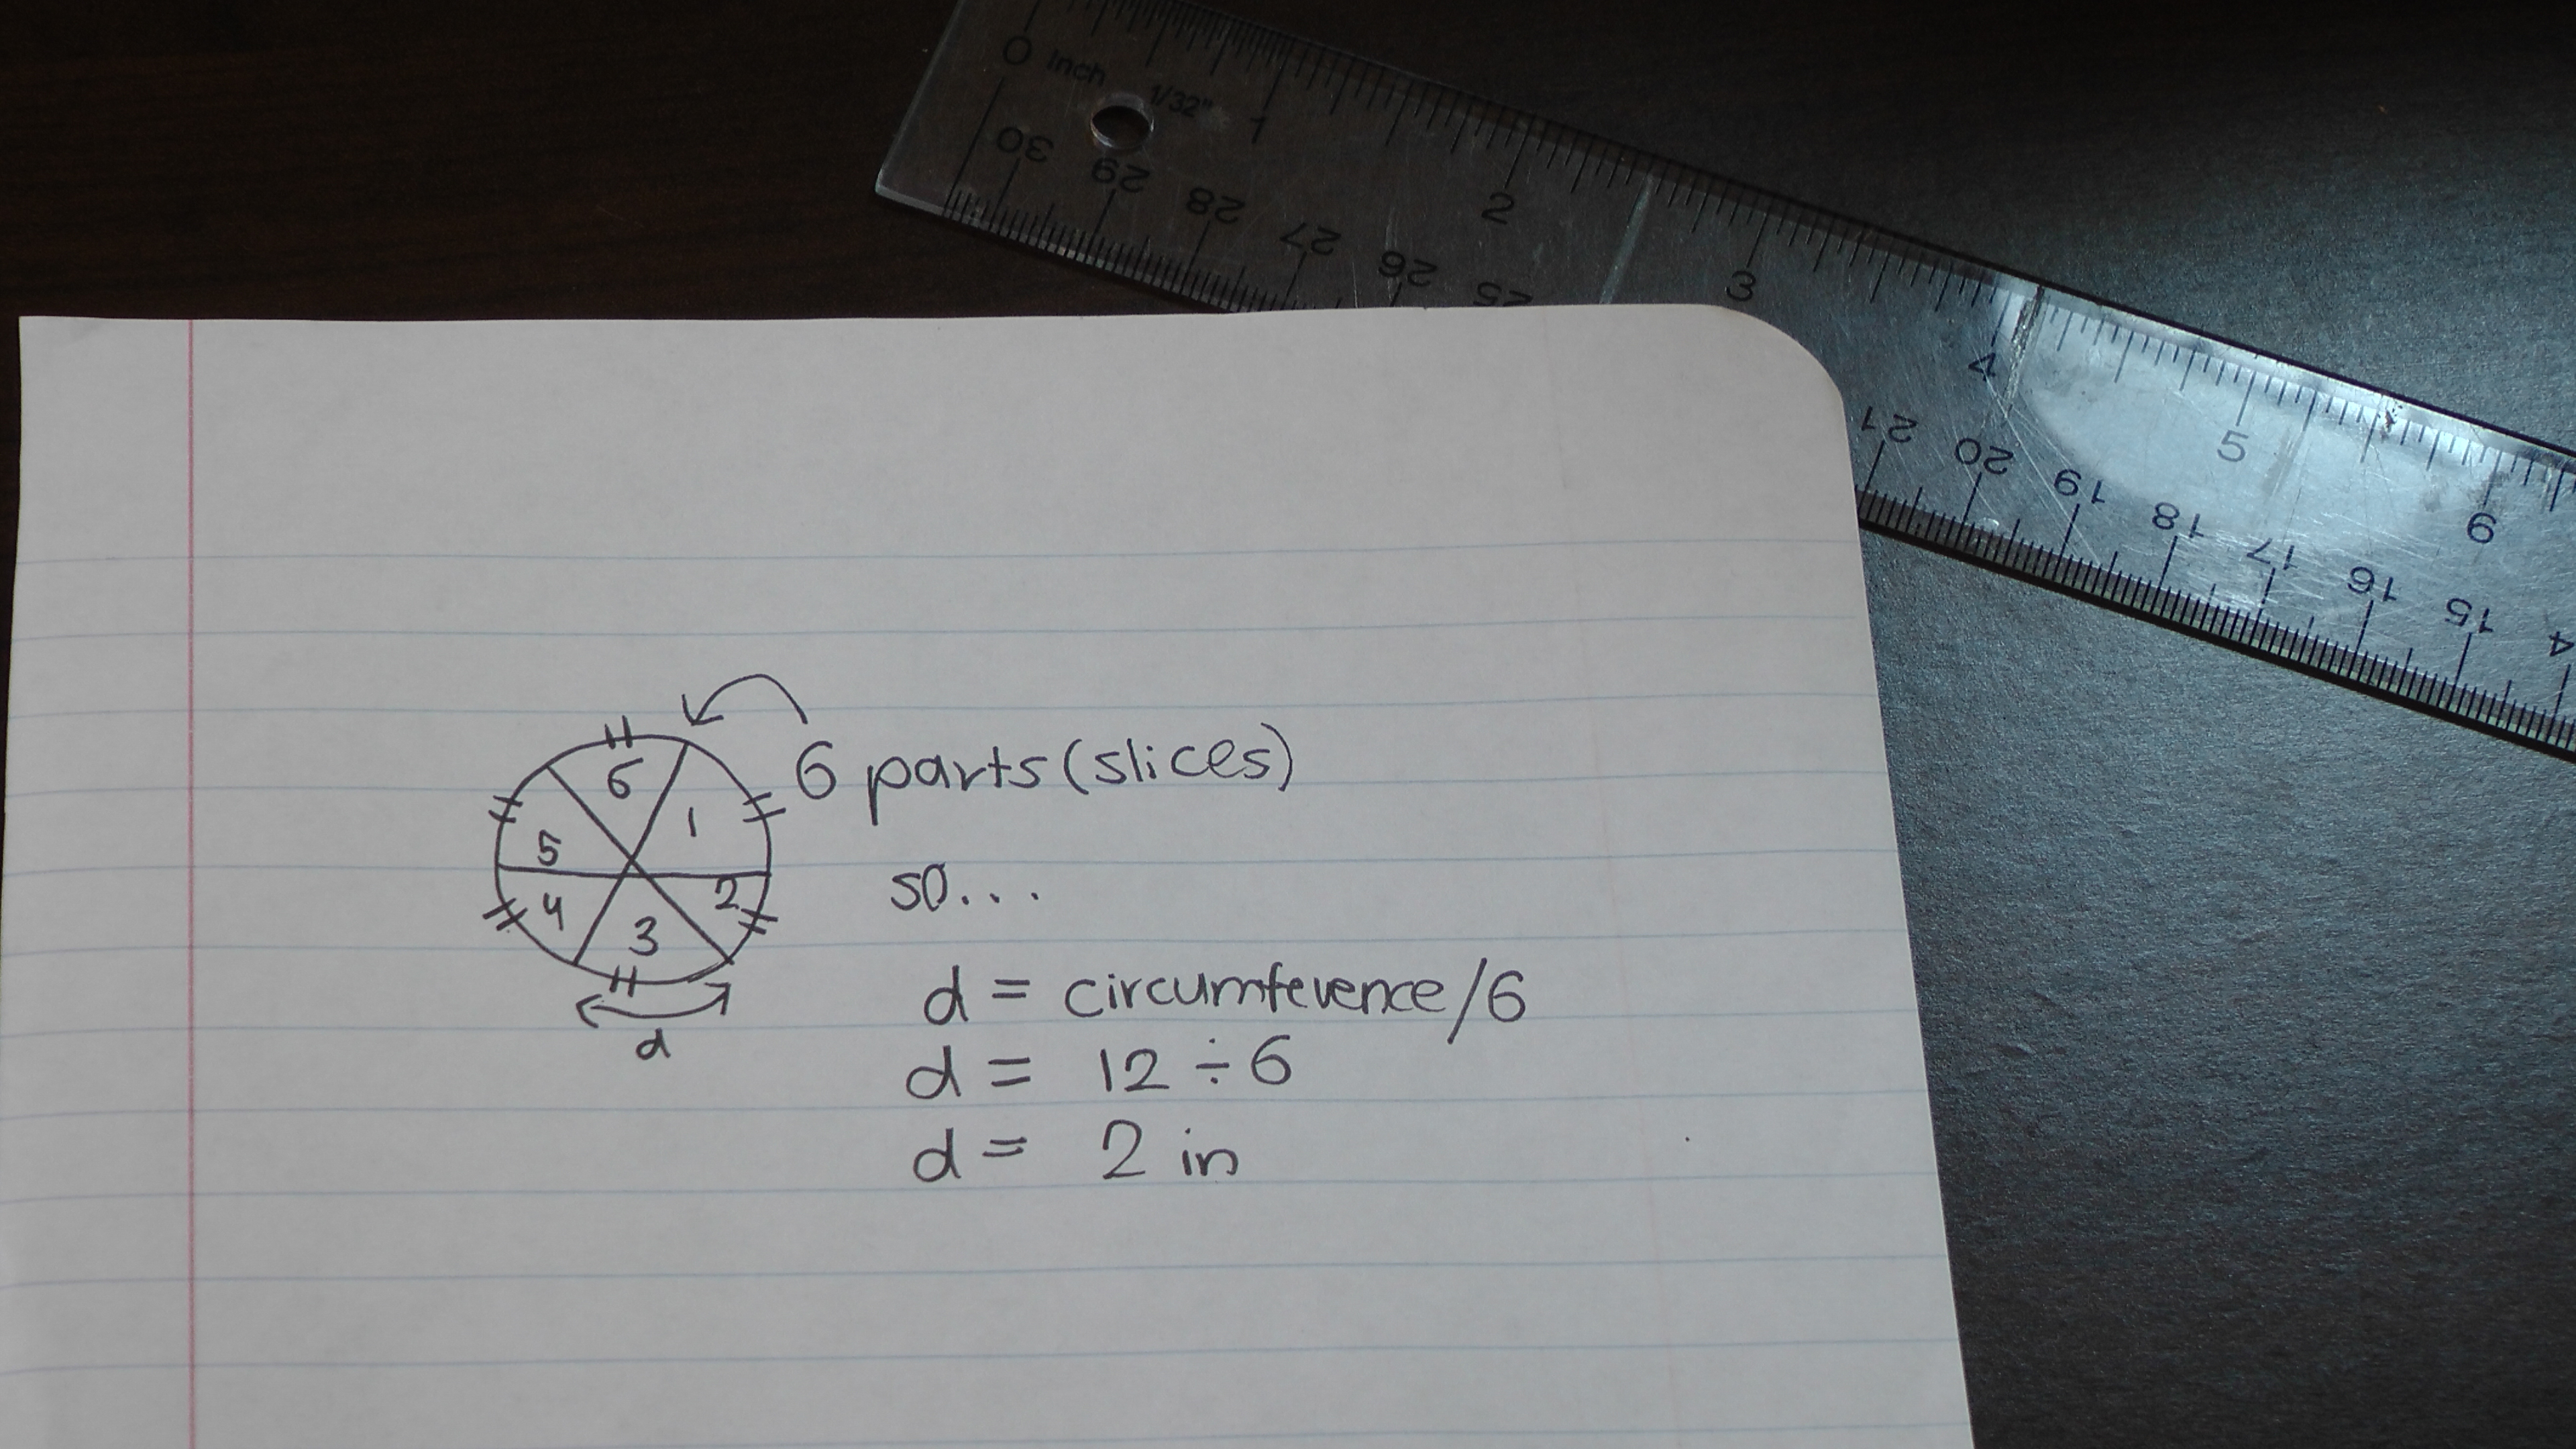 0 inch 1/32" 1 2 3 4 5 6
30 29 28 27 26 25 21 20 19 18 17 16 15
6 parts (slices)
6
1
5
2
4
3
so...
d
d = circumference/6
d = 12 ÷ 6
d = 2 in